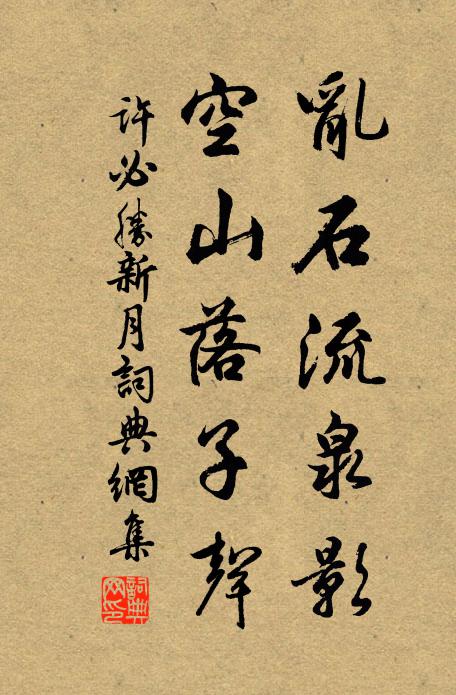 亂石流泉影
空山落子聲
許必勝新月詞典網集
詞典网印